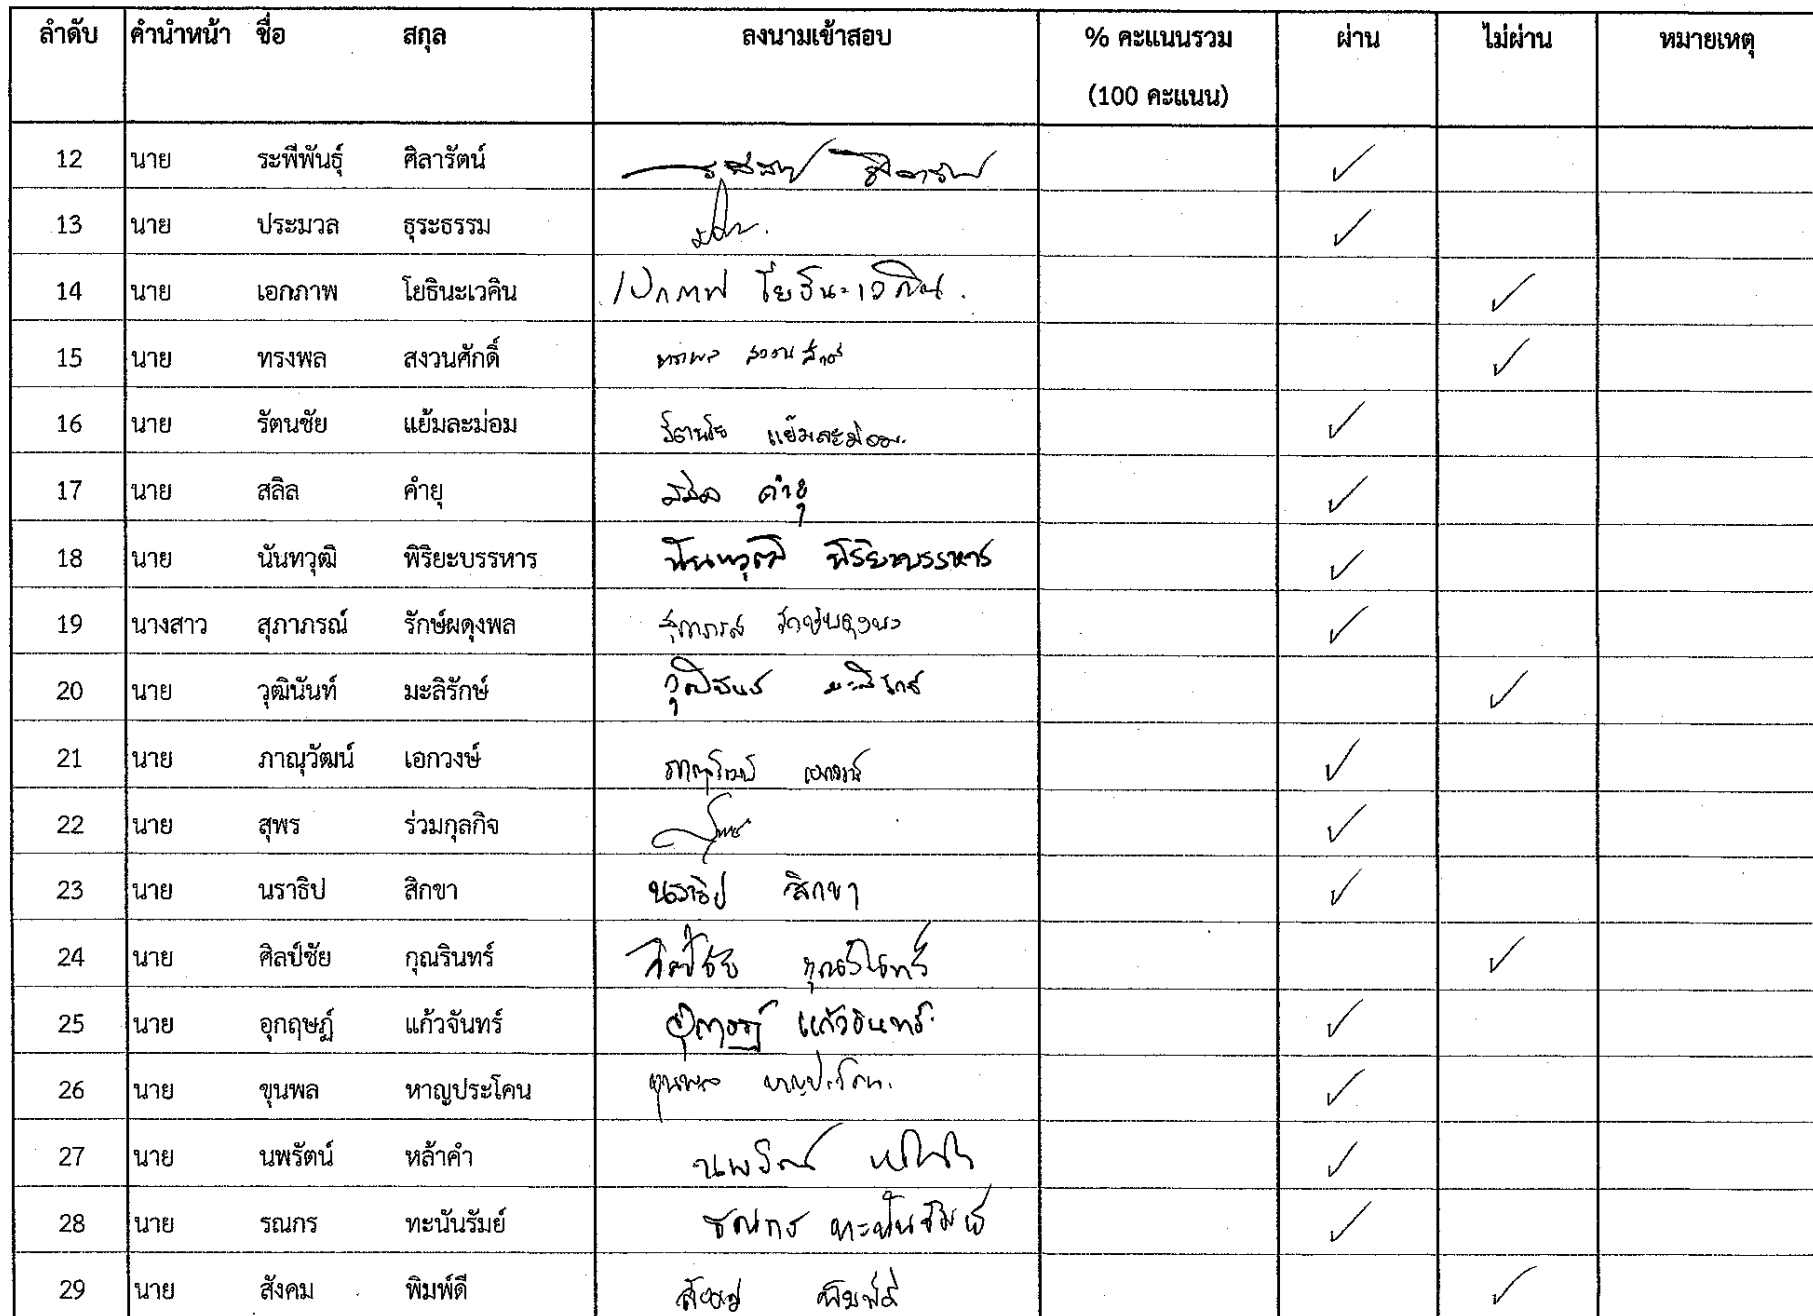 ลำดับ คำนำหน้า ชื่อ สกุล ลงนามเข้าสอบ % คะแนนรวม ผ่าน ไม่ผ่าน หมายเหตุ
(100 คะแนน)
12 นาย ระพีพันธุ์ ศิลารัตน์ ✓
13 นาย ประมวล ธุระธรรม ✓
14 นาย เอกภาพ โยธินะเวคิน เอกภาพ โยธินะเวคิน. ✓
15 นาย ทรงพล สงวนศักดิ์ ทรงพล สงวนศักดิ์ ✓
16 นาย รัตนชัย แย้มละม่อม รัตนชัย แย้มละม่อม. ✓
17 นาย สลิล คำยุ สลิล คำยุ ✓
18 นาย นันทวุฒิ พิริยะบรรหาร นันทวุฒิ พิริยะบรรหาร ✓
19 นางสาว สุภาภรณ์ รักษ์ผดุงพล สุภาภรณ์ รักษ์ผดุงพล ✓
20 นาย วุฒินันท์ มะลิรักษ์ วุฒินันท์ มะลิรักษ์ ✓
21 นาย ภาณุวัฒน์ เอกวงษ์ ภาณุวัฒน์ เอกวงษ์ ✓
22 นาย สุพร ร่วมกุลกิจ ✓
23 นาย นราธิป สิกขา นราธิป สิกขา ✓
24 นาย ศิลป์ชัย กุณรินทร์ ศิลป์ชัย กุณรินทร์ ✓
25 นาย อุกฤษฏ์ แก้วจันทร์ อุกฤษฏ์ แก้วจันทร์ ✓
26 นาย ขุนพล หาญประโคน ขุนพล หาญประโคน. ✓
27 นาย นพรัตน์ หล้าคำ นพรัตน์ หล้าคำ ✓
28 นาย รณกร ทะนันรัมย์ รณกร ทะนันรัมย์ ✓
29 นาย สังคม พิมพ์ดี สังคม พิมพ์ดี ✓